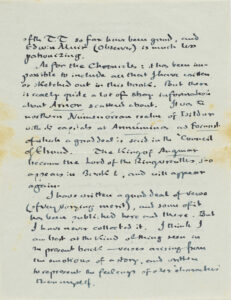 of the T.T. so far has been good, and
Edwin Muir (Observer) is much less
patronizing.
As for the Chronicles: it has been im-
possible to include all that I have written
or sketched out in this book. But there
is really quite a lot of stray information
about Arnor scattered about. It was the
northern Númenórean realm of Isildur
with its capitals at Annúminas and Fornost
of which a good deal is said in the 'Council
of Elrond'. The king of Angmar
became the Lord of the Ringwraiths
appears in Book I, and will appear
again.
I have written a good deal of verse
(of very varying merit), and some of it
has been published here and there. But
I have never collected it. I think I
am best at the kind of thing seen in
the present book — verses arising from
the emotions of a story, and written
to represent the feelings of other characters
than myself.